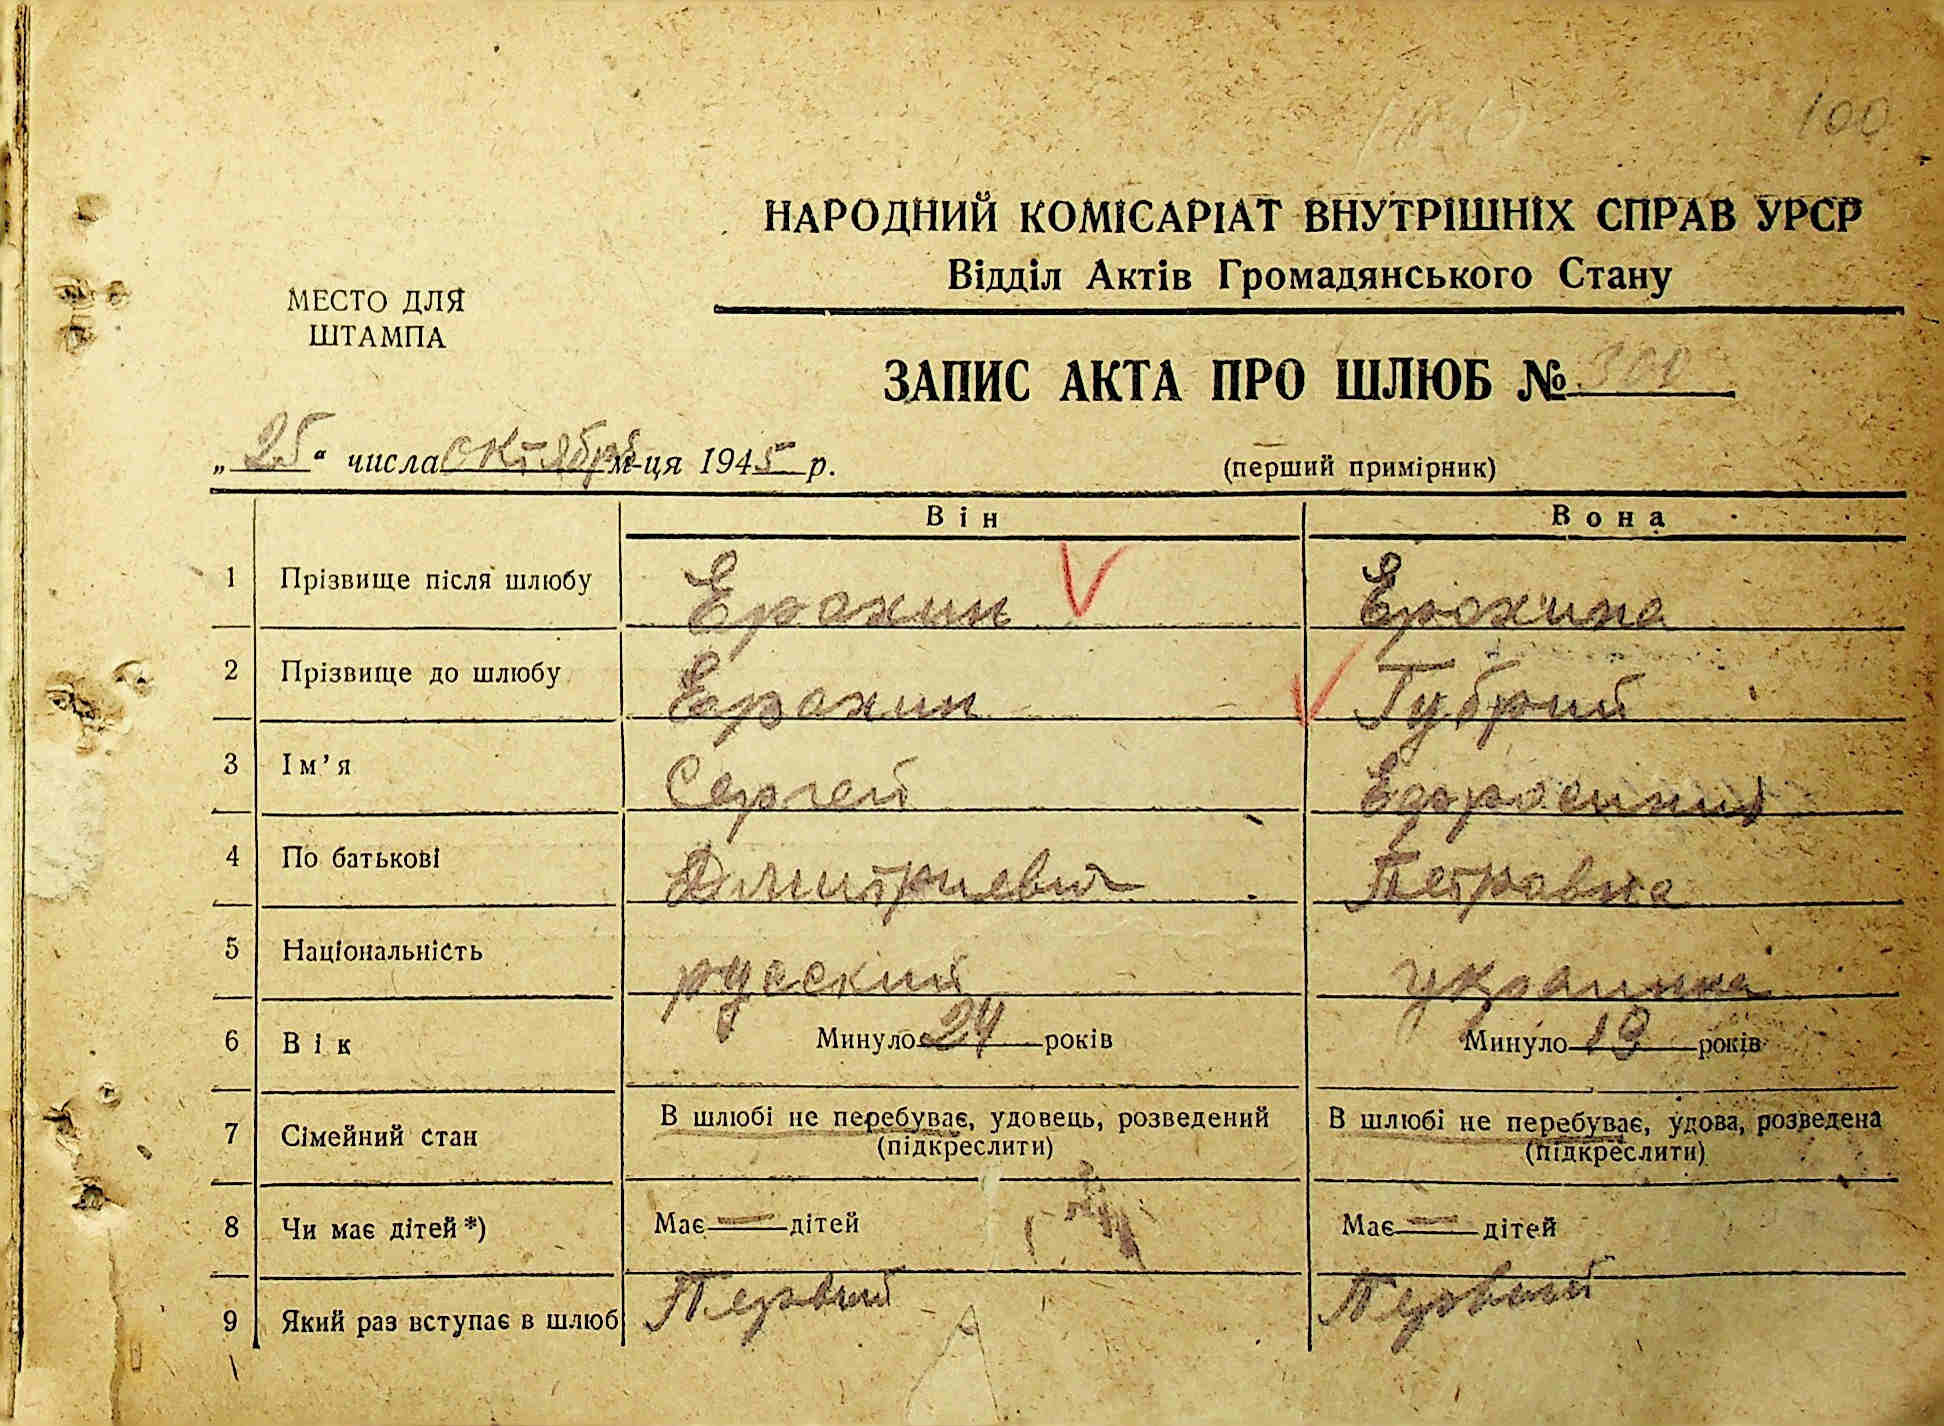 100
НАРОДНИЙ КОМІСАРІАТ ВНУТРІШНІХ СПРАВ УРСР
Відділ Актів Громадянського Стану
МЕСТО ДЛЯ
ШТАМПА
ЗАПИС АКТА ПРО ШЛЮБ № 300
„25“ числа октября м-ця 1945 р. (перший примірник)
Він Вона
1 Прізвище після шлюбу Ерохин Ерохина
2 Прізвище до шлюбу Ерохин Губрий
3 Ім’я Сергей Ефросиния
4 По батькові Дмитриевич Петровна
5 Національність русский украинка
6 Вік Минуло 24 років Минуло 19 років
7 Сімейний стан В шлюбі не перебуває, удовець, розведений В шлюбі не перебуває, удова, розведена
(підкреслити) (підкреслити)
8 Чи має дітей *) Має — дітей Має — дітей
9 Який раз вступає в шлюб Первый Первый